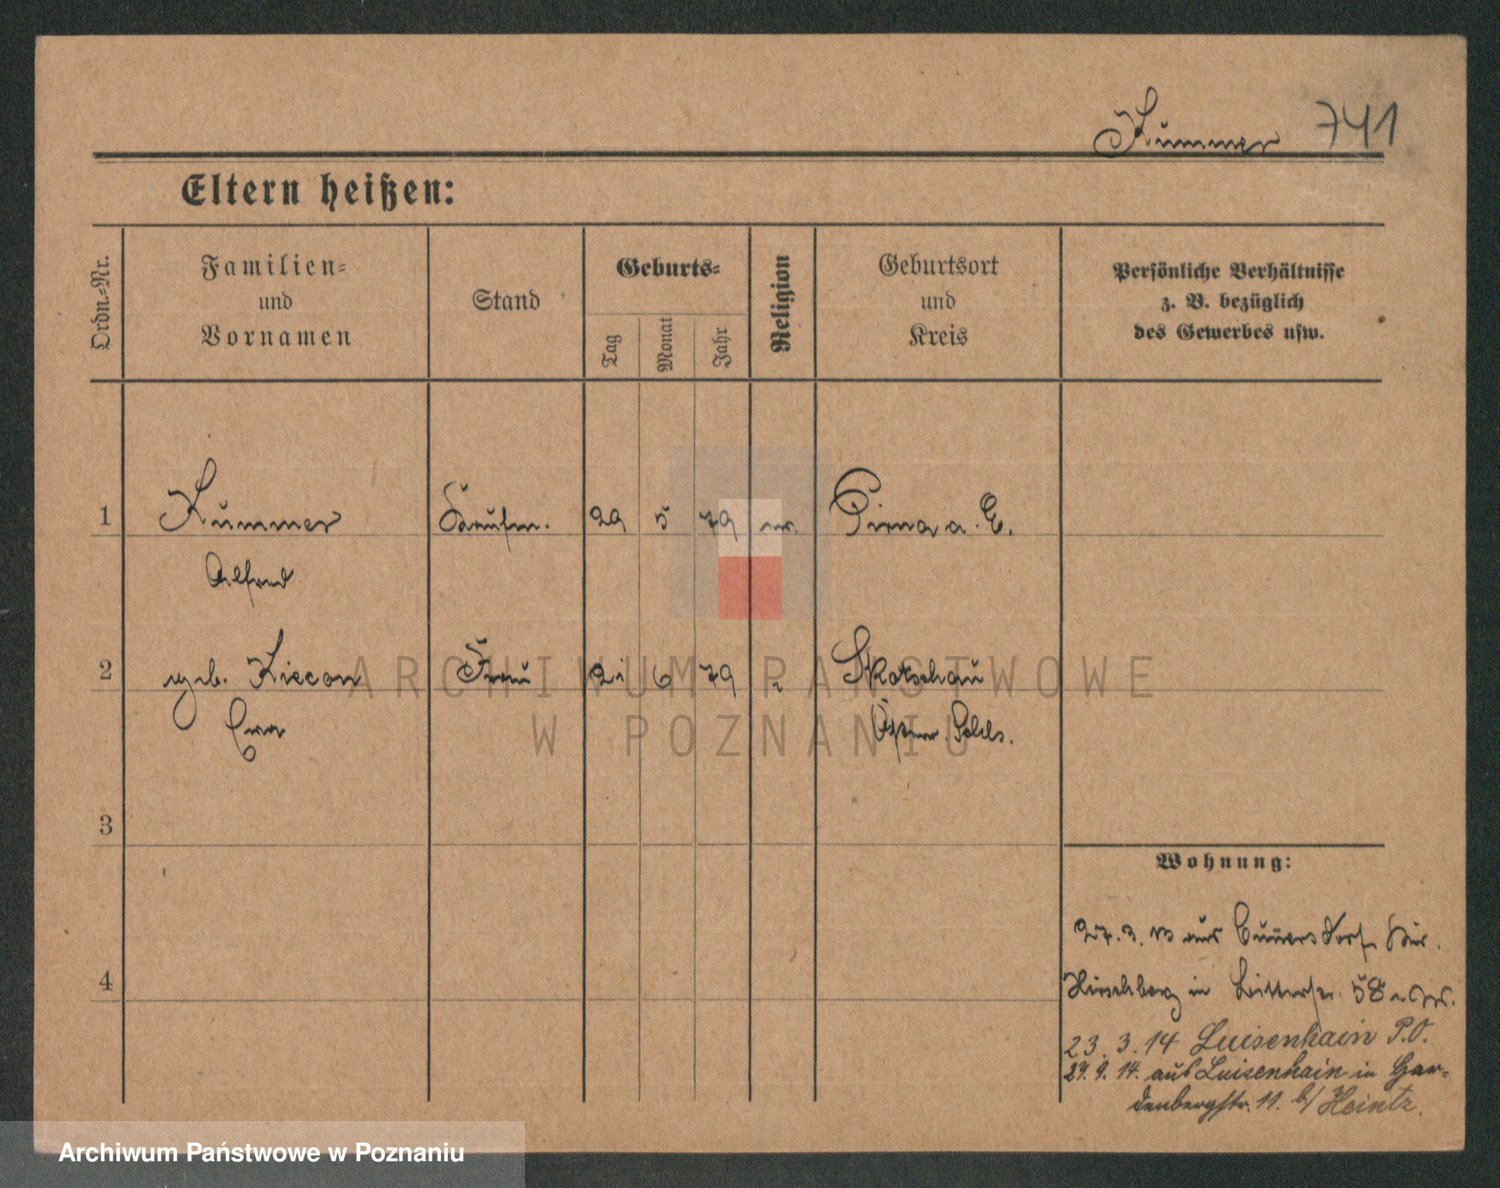 Kummer 741
Eltern heißen:
Ordn.-Nr.
Familien-
und
Vornamen
Stand
Geburts-
Tag
Monat
Jahr
Religion
Geburtsort
und
Kreis
Persönliche Verhältnisse
z. B. bezüglich
des Gewerbes usw.
1 Kummer Kaufm. 29 5 79 ev. Pirna a. E.
Alfred
2 geb. Kiecon Frau 21 6 79 Skotschau
Österr Schles.
3
4
Wohnung:
27. 3. 13 aus Cunersdorf Kr.
Hirschberg in Ritterstr. 58
23. 3. 14 Luisenhain P.O.
29. 9. 14. aus Luisenhain in Gar-
denbergstr. 11. b/ Heintz.
ARCHIWUM PAŃSTWOWE
W POZNANIU
Archiwum Państwowe w Poznaniu